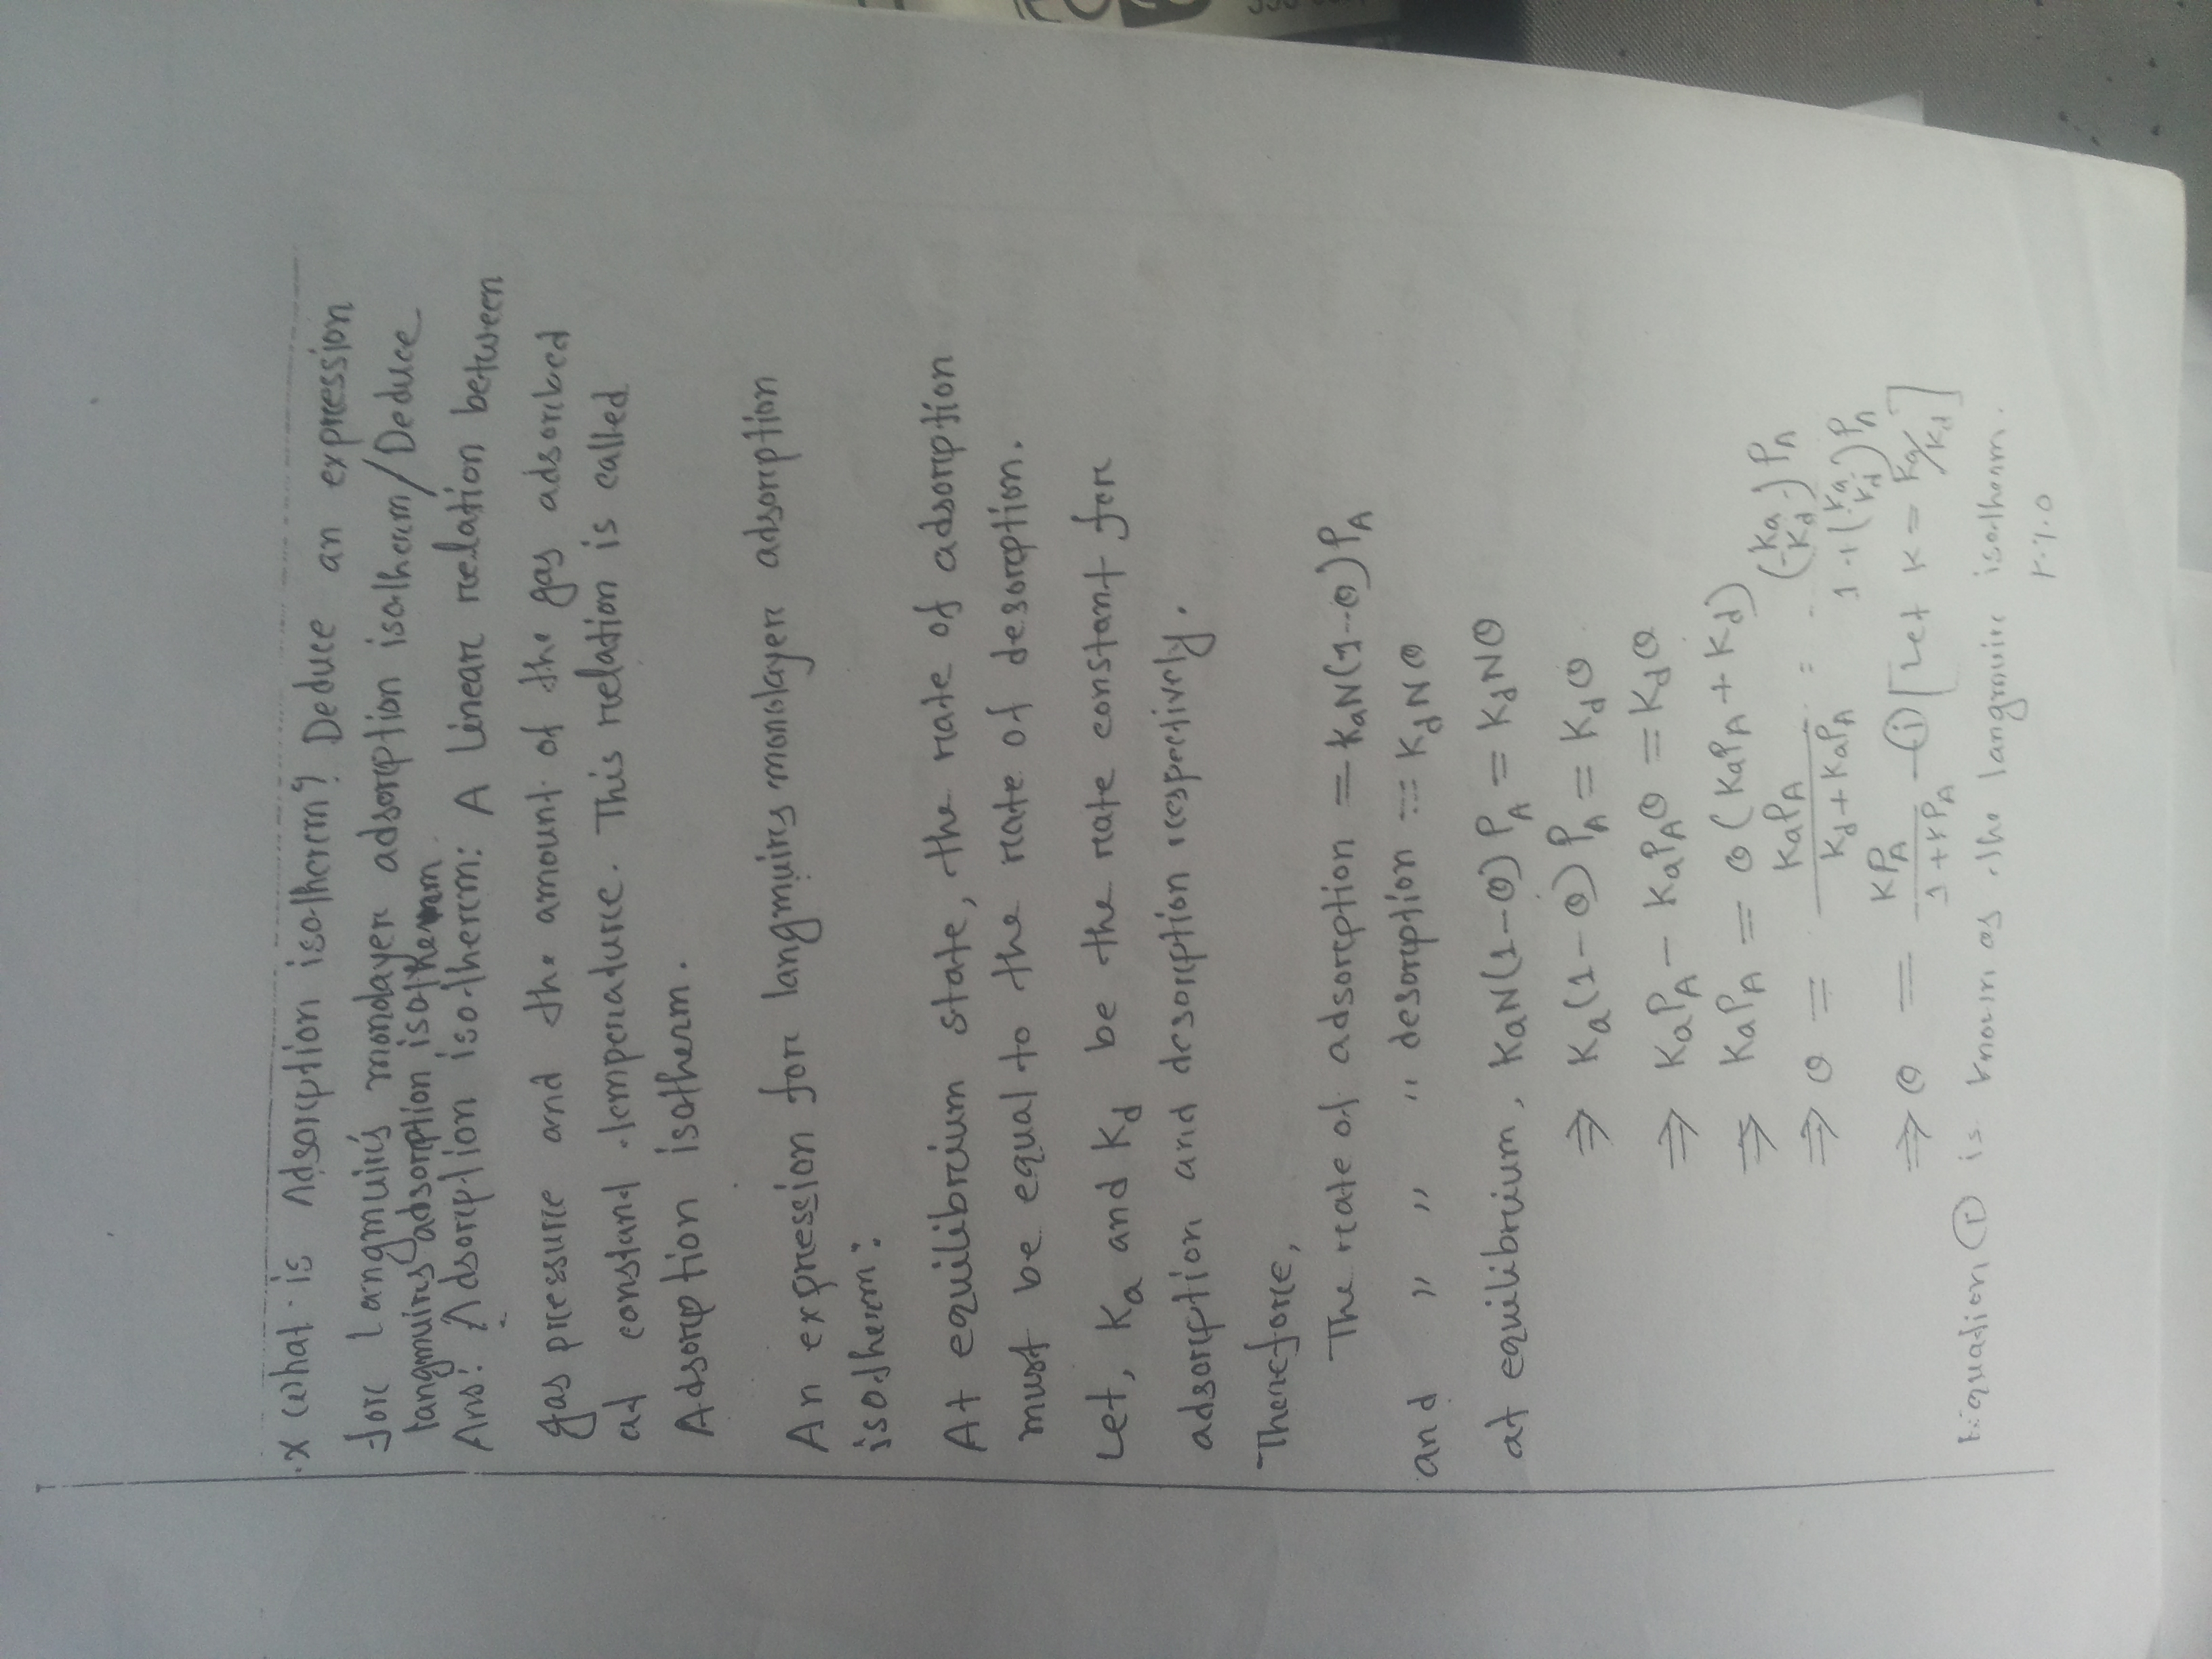 x what is Adsorption isotherm? Deduce an expression
for Langmuirs monolayer adsorption isotherm/Deduce
langmuirs adsorption isotherm
Ans: Adsorption isotherm: A linear relation between
gas pressure and the amount of the gas adsorbed
at constant temperature. This relation is called
Adsorption isotherm.
An expression for langmuirs monolayer adsorption
isotherm:
At equilibrium state, the rate of adsorption
must be equal to the rate of desorption.
Let, Ka and Kd be the rate constant for
adsorption and desorption respectively.
Therefore,
The rate of adsorption = KaN(1-θ)PA
and " " " desorption = KdNθ
at equilibrium, KaN(1-θ)PA = KdNθ
⇒ Ka(1-θ)PA = Kdθ
⇒ KaPA - KaPAθ = Kdθ
⇒ KaPA = θ(KaPA + Kd)
⇒ θ = KaPA / Kd + KaPA = (Ka/Kd)PA / 1+(Ka/Kd)PA
⇒ θ = KPA / 1+KPA —(i) [Let K = Ka/Kd]
Equation (i) is known as the langmuir isotherm.